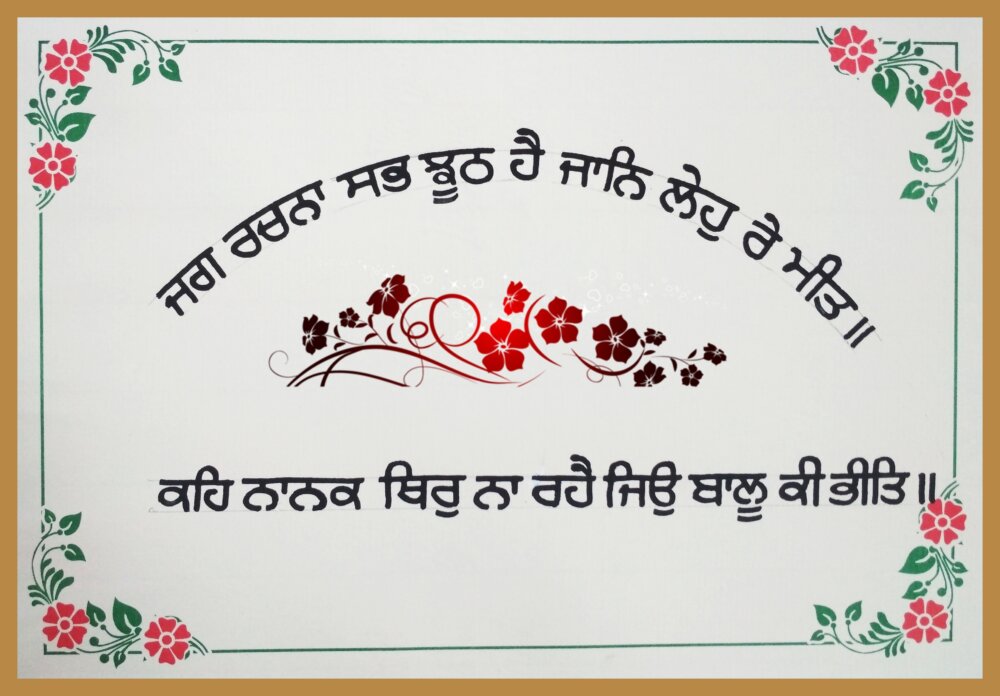 ਜਗ ਰਚਨਾ ਸਭ ਝੂਠ ਹੈ ਜਾਨਿ ਲੇਹੁ ਰੇ ਮੀਤ॥
ਕਹਿ ਨਾਨਕ ਥਿਰੁ ਨਾ ਰਹੈ ਜਿਉ ਬਾਲੂ ਕੀ ਭੀਤਿ॥